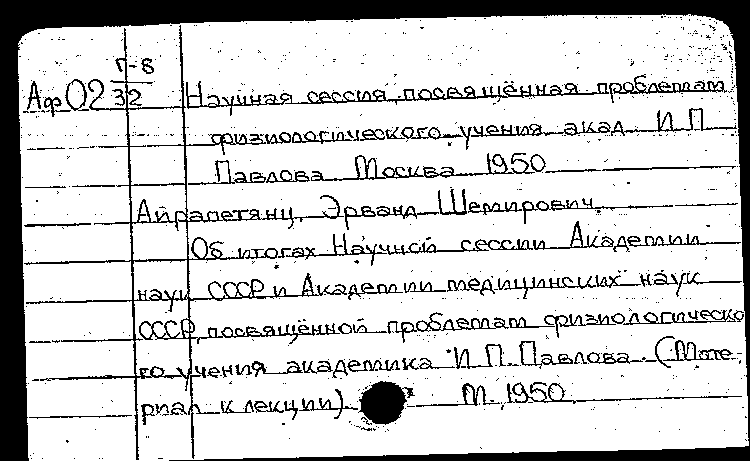 Г-8
Аф02 32 Научная сессия, посвящённая проблемам
физиологического учения акад. И.П.
Павлова Москва 1950
Айрапетянц, Эрванд Шемирович.
Об итогах Научной сессии Академии
наук СССР и Академии медицинских наук
СССР, посвящённой проблемам физиологическо
го учения академика И.П.Павлова. (Мате-
риал к лекции). М. 1950.